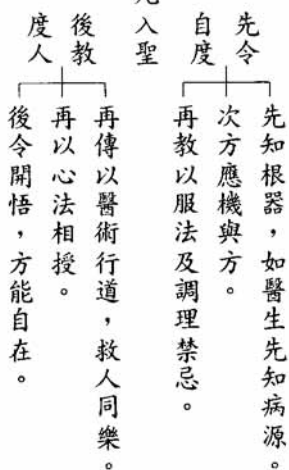 先令
自度
先知根器，如醫生先知病源。
次方應機與方。
再教以服法及調理禁忌。
入聖
後教
度人
再傳以醫術行道，救人同樂。
再以心法相授。
後令開悟，方能自在。